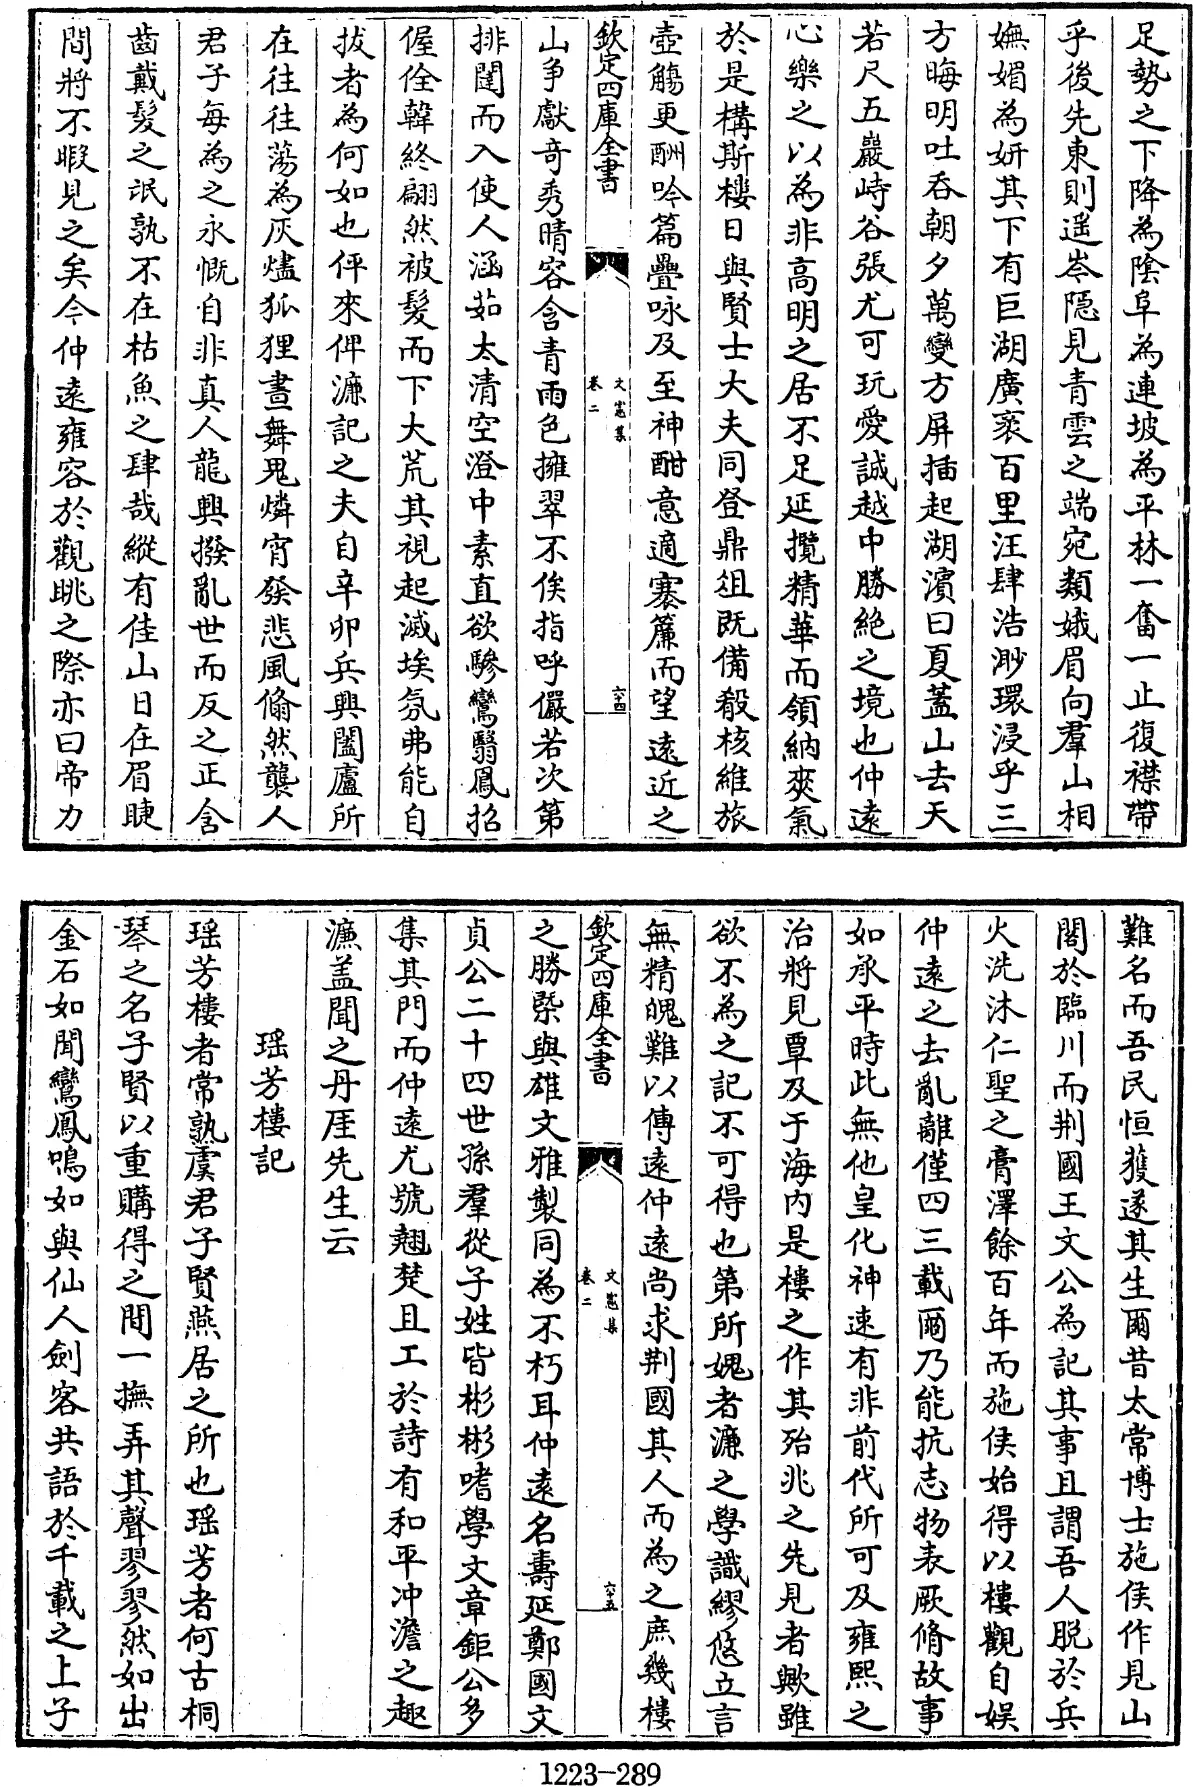 足勢之下降為陰阜為連坡為平林一奮一止復襟帶
乎後先東則遥岑隠見青雲之端宛類娥眉向羣山相
嫵媚為妍其下有巨湖廣袤百里汪肆浩渺環浸乎三
方晦明吐吞朝夕萬變方屏插起湖濱曰夏葢山去天
若尺五巖峙谷張尤可玩愛誠越中勝絶之境也仲遠
心樂之以為非高明之居不足延攬精華而領納爽氣
於是構斯樓日與賢士大夫同登鼎俎既備殽核維旅
壺觴更酬吟篇疊咏及至神酣意適褰簾而望遠近之
欽定四庫全書
文憲集
卷二
六十四
山争獻奇秀晴容含青雨色擁翠不俟指呼儼若次第
排闥而入使人涵茹太清空澄中素直欲驂鸞翳鳳招
偓佺韓終翩然被髮而下大荒其視起滅埃氛弗能自
拔者為何如也伻來俾濂記之夫自辛卯兵興闔廬所
在往往蕩為灰燼狐狸晝舞鬼燐宵發悲風翛然襲人
君子每為之永慨自非真人龍興撥亂世而反之正含
齒戴髮之氓孰不在枯魚之肆哉縱有佳山日在眉睫
間將不暇見之矣今仲遠雍容於觀眺之際亦曰帝力
難名而吾民恒獲遂其生爾昔太常博士施侯作見山
閣於臨川而荆國王文公為記其事且謂吾人脱於兵
火洗沐仁聖之膏澤餘百年而施侯始得以樓觀自娱
仲遠之去亂離僅四三載爾乃能抗志物表厥脩故事
如承平時此無他皇化神速有非前代所可及雍熙之
治將見覃及于海内是樓之作其殆兆之先見者歟雖
欲不為之記不可得也第所媿者濂之學識繆悠立言
無精魄難以傳遠仲遠尚求荆國其人而為之庶幾樓
欽定四庫全書
文憲集
卷二
六十五
之勝槩與雄文雅製同為不朽耳仲遠名壽延鄭國文
貞公二十四世孫羣從子姓皆彬彬嗜學文章鉅公多
集其門而仲遠尤號翹楚且工於詩有和平冲澹之趣
濂盖聞之丹厓先生云
瑶芳樓記
瑶芳樓者常熟虞君子賢燕居之所也瑶芳者何古桐
琴之名子賢以重購得之間一撫弄其聲翏翏然如出
金石如聞鸞鳳鳴如與仙人劍客共語於千載之上子
1223-289